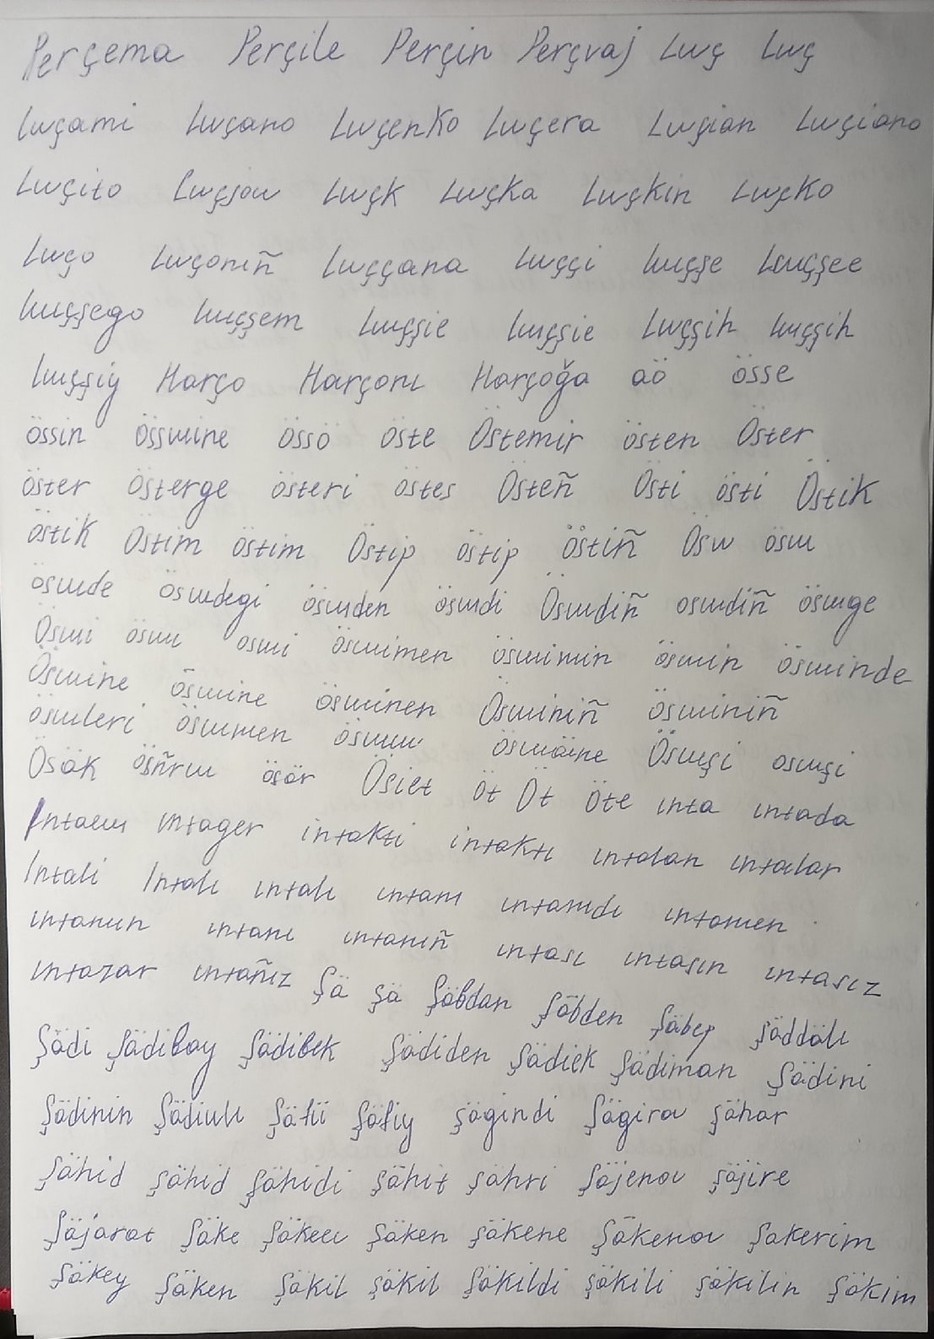 Perçema Perçile Perçin Perçvaj Luç Luç
Luçami Luçano Luçenko Luçera Luçian Luçiano
Luçito Luçjou Luçk Luçka Luçkin Luçko
Luço Luçonıñ Luççana Luççi luçşe Luçşee
luçşego luçşem luçşie luçşie Luçşih luçşih
luçşiy Harço Harçonı Harçoğa aö össe
össin össuine össö öste Östemir östen Öster
öster österge österi östes Östeñ Östi östi Östik
östik Östim östim Östip östip östiñ Ösu ösu
ösude ösudegi ösuden ösudi Ösudiñ osudiñ ösuge
Ösui ösuı osui ösuimen ösuimin ösuin ösuinde
Ösuine ösuine ösuinen Ösuiniñ ösuiniñ
ösuleri ösumen ösuäine Ösuşi osuşi
Ösäk ösär Ösiet öt Öt Öte ınta ıntada
ıntager intakti intaktı ıntalan ıntalar
Intali Intalı ıntalı ıntam ıntamdı ıntamen
ıntanun ıntanı ıntanıñ ıntası ıntasın ıntasız
ıntazar ıntañız Şä şä Şäbdan Şäbden Şäbep şäddäli
Şädi Şädibay Şädibek Şädiden Şädiek Şädiman Şädini
Şädinin Şäfii Şäfiy şägindi Şägirov şähar
Şähid şähid şähidi şähit şahri Şäjenov şäjire
Şäjarat Şäke Şäkeev Şäken şäkene Şäkenov Şakerim
Şäkey Şäken Şäkil şäkil Şäkildi şäkili şäkilin Şäkim